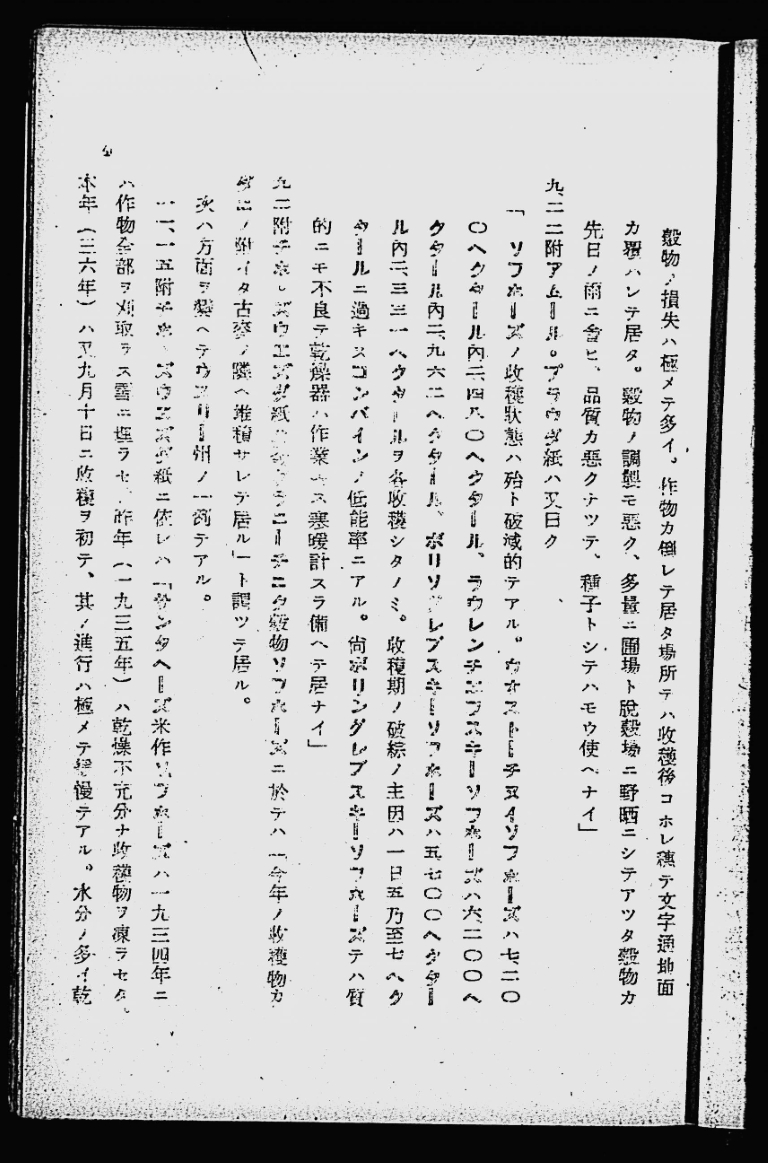 穀物ノ損失ハ極メテ多イ。作物カ倒レテ居タ場所テハ收穫後コホレ穗テ文字通地面
カ覆ハレテ居タ。穀物ノ調製モ惡ク、多量ニ圃場ト脫穀場ニ野晒ニシテアツタ穀物カ
先日ノ雨ニ會ヒ、品質カ惡クナツテ、種子トシテハモウ使ヘナイ」
九、二二附アムール。プラウダ紙ハ又曰ク
「ソフホーズノ收穫狀態ハ殆ト破滅的テアル。ウオストーチヌイソフホーズハ七、二〇
〇ヘクタール內二、四八〇ヘクタール、ラウレンチエフスキーソフホーズハ六、二〇〇ヘ
クタール內二、九六二ヘクタール、ボリソグレブスキーソフホーズハ五七〇〇ヘクター
ル內二、三三一ヘクタールヲ各收穫シタノミ。收穫期ノ破綜ノ主因ハ一日五乃至七ヘク
タールニ過キスコンバインノ低能率ニアル。尙ボリングレブスキーソフホーズテハ質
的ニモ不良テ乾燥器ハ作業セス寒暖計スラ備ヘテ居ナイ」
九、二附チホ。ズウエズダ紙ハ ニ於テハ「今年ノ收穫物カ
ダニノ附イタ古麥ノ隣ヘ堆積サレテ居ル」ート謂ツテ居ル。
次ハ方面ヲ變ヘテウスリー州ノ一例テアル。
一一、一五附チホ、ズウエズダ紙ニ依レハ「サンタヘーズ米作ソフホーズハ一九三四年ニ
ハ作物全部ヲ刈取ラス雪ニ埋ラセ、昨年(一九三五年)ハ乾燥不充分ナ收穫物ヲ凍ラセタ。
本年(三六年)ハ又九月十日ニ收穫ヲ初テ、其ノ進行ハ極メテ緩慢テアル。水分ノ多イ乾
4